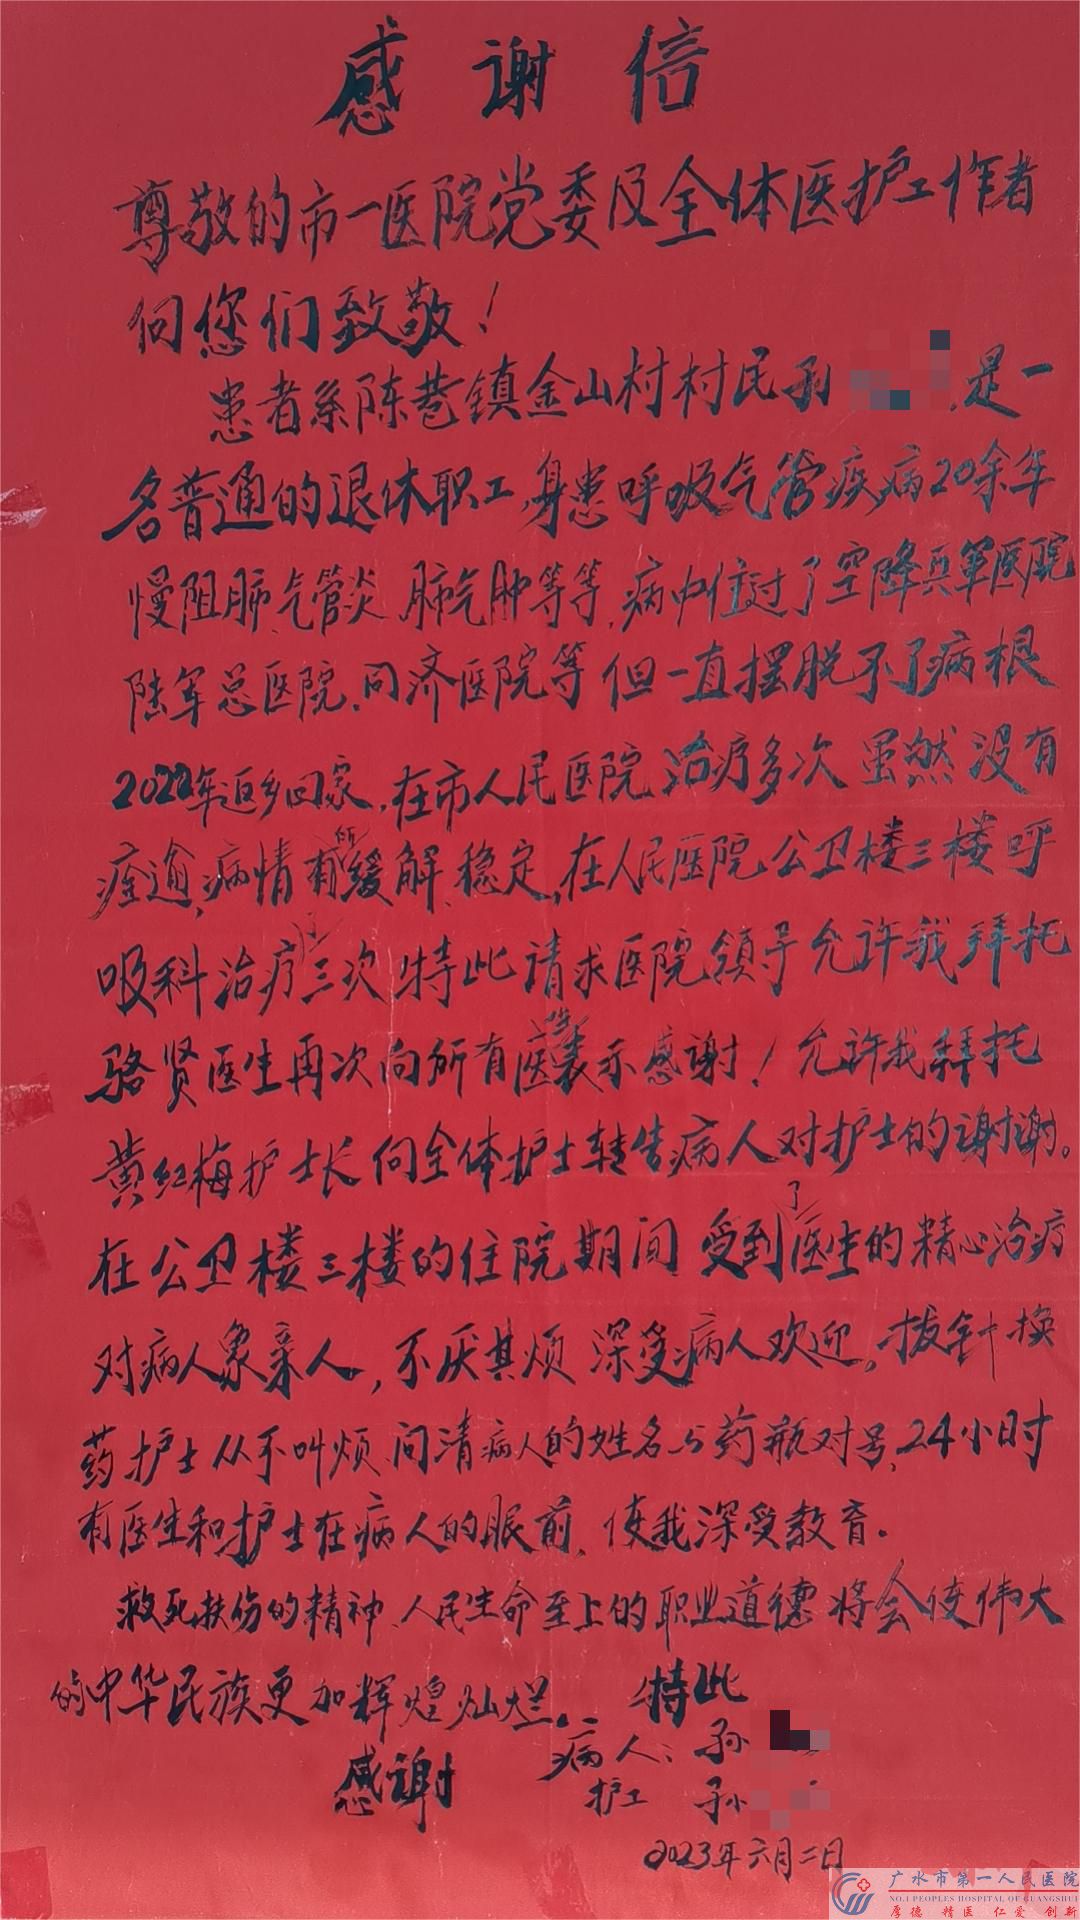 感谢信
尊敬的市一医院党委及全体医护工作者
向您们致敬！
患者系陈巷镇金山村村民孙 是一
名普通的退休职工,身患呼吸气管疾病20余年
慢阻肺、气管炎、肺气肿等等,病中住过了空降兵军医院
陆军总医院.同济医院等但一直摆脱不了病根
2022年返乡回家,在市人民医院治疗多次虽然没有
痊逾,病情有所缓解、稳定,在人民医院公卫楼三楼呼
吸科治疗三次特此请求医院领导允许我拜托
骆贤医生再次向所有医生表示感谢！允许我拜托
黄红梅护士长向全体护士转告病人对护士的谢谢。
在公卫楼三楼的住院期间受到了医生的精心治疗
对病人象亲人,不厌其烦深受病人欢迎,拔针换
药护士从不叫烦、问清病人的姓名与药瓶对号,24小时
有医生和护士在病人的眼前,使我深受教育.
救死扶伤的精神、人民生命至上的职业道德将会使伟大
的中华民族更加辉煌灿烂。特此
感谢
病人:孙
护工 孙
2023年六月二日
广水市第一人民医院
NO.1 PEOPLES HOSPITAL OF GUANGSHUI
厚德 精医 仁爱 创新